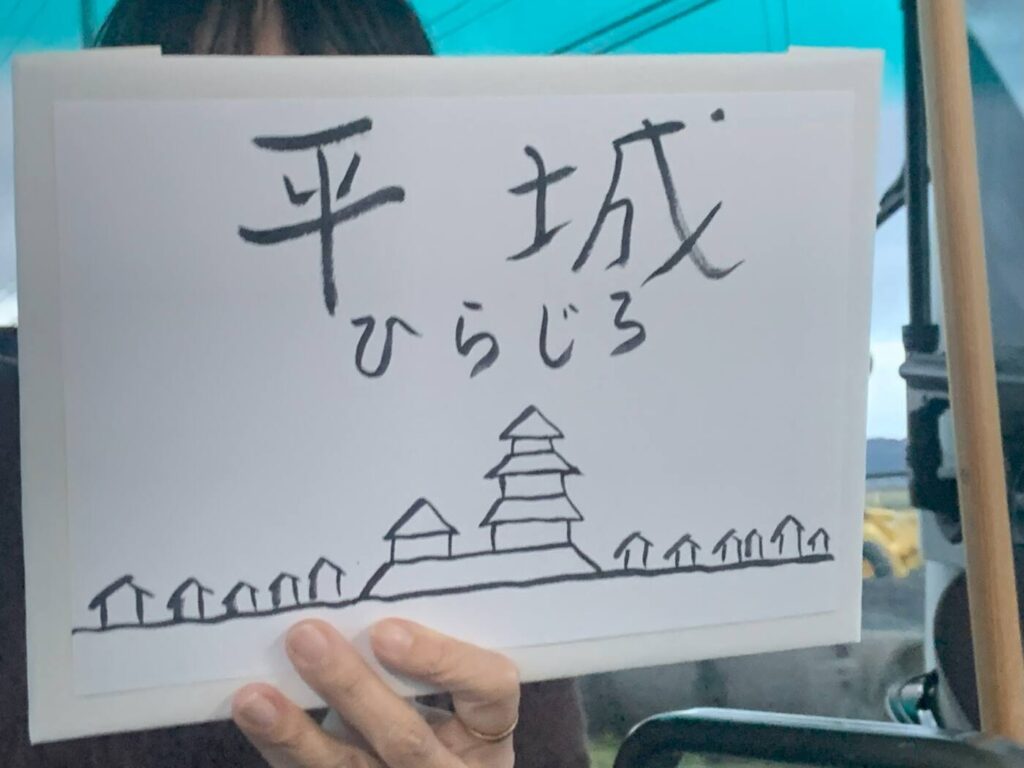 平城
ひらじろ